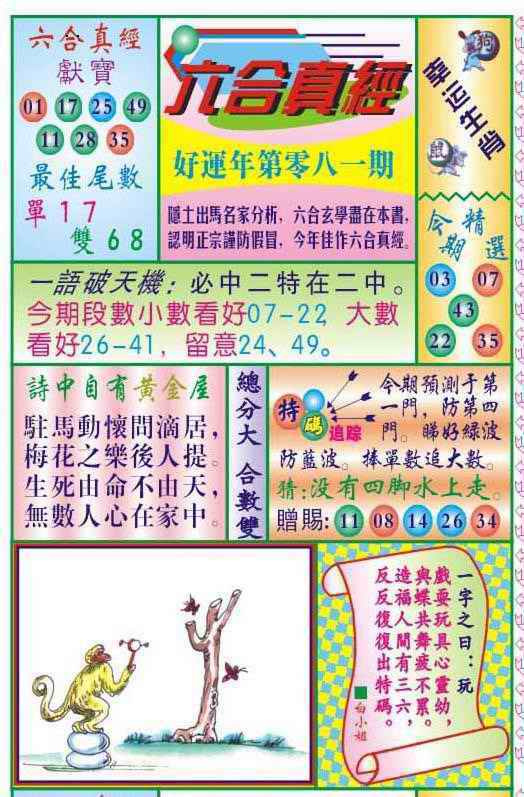 六合真經
獻寶
01 17 25 49
11 28 35
最佳尾數
單17
雙68
六合真經
好運年第零八一期
隱士出馬名家分析，六合玄學盡在本書，
認明正宗謹防假冒，今年佳作六合真經。
狗
幸运生肖
鼠
今期精選
03 07
43
22 35
一語破天機：必中二特在二中。
今期段數小數看好07-22，大數
看好26-41，留意24、49。
詩中自有黃金屋
駐馬動懷問滴居，
梅花之樂後人提。
生死由命不由天，
無數人心在家中。
總分大 合數雙
特碼追踪
今期預測于第
一門，防第四
門。睇好綠波
防藍波。捧單數追大數。
猜：没有四脚水上走。
贈賜：11 08 14 26 34
一字之曰：玩
戲耍玩具心靈幼，
與蝶共舞疲不累。
造福人間有三六，
反反復復出特碼。
■白小姐